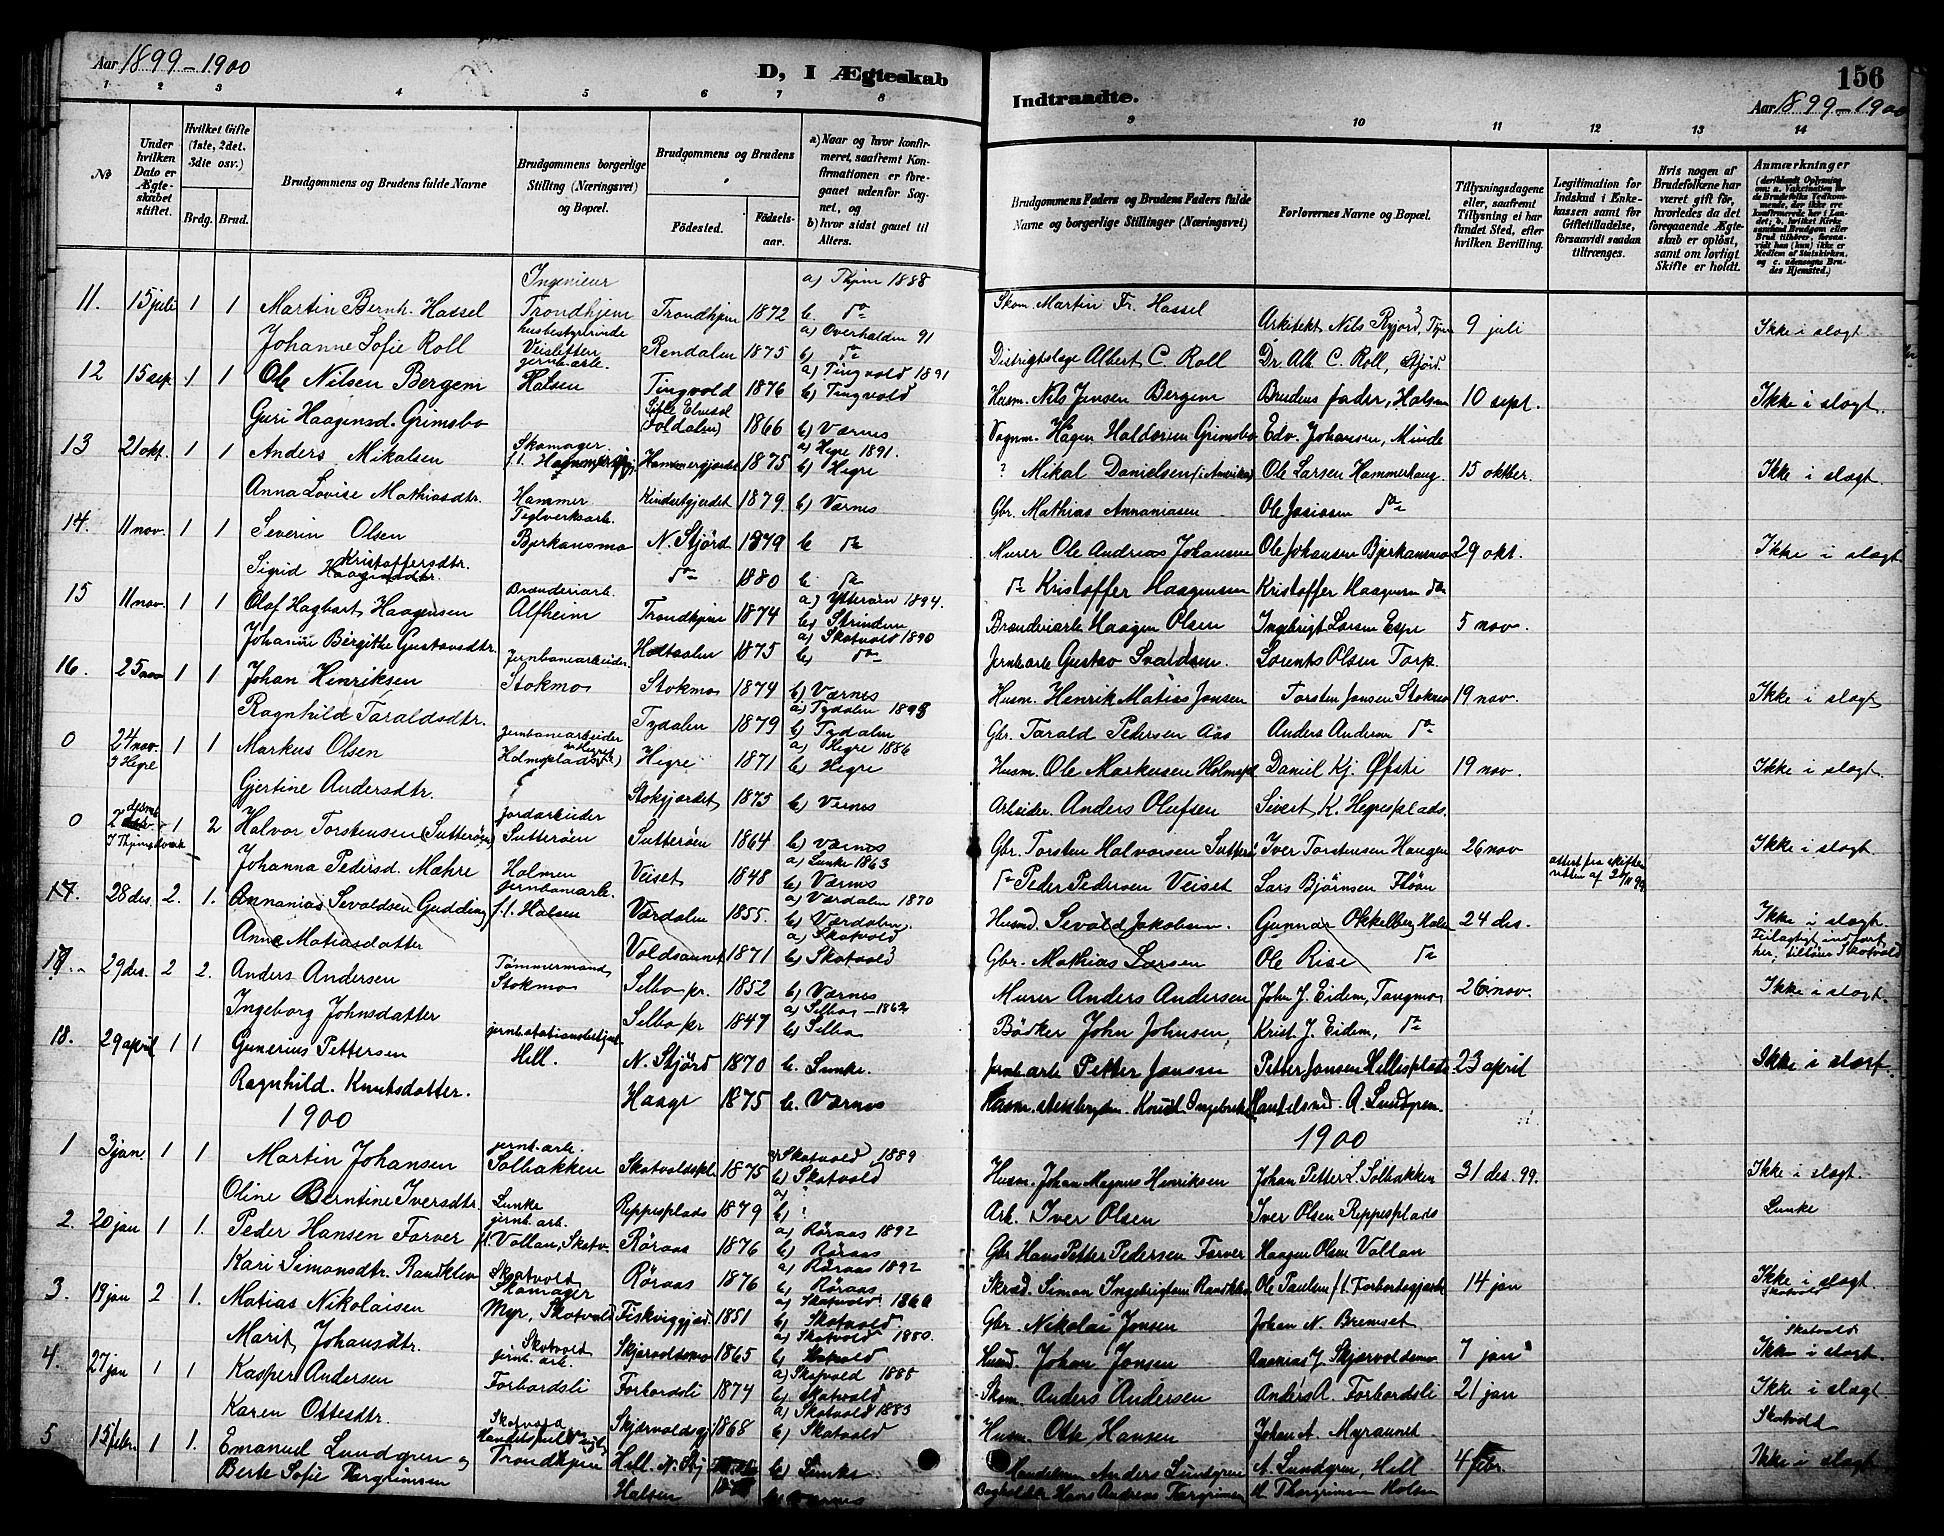 Aar 1899-1900
D, I Ægteskab
Indtraadte.
156
Aar 1899-1900
1 2 3 4 5 6 7 8 9 10 11 12 13 14
No
Under hvilken Dato er Ægteskabet stiftet.
Hvilket Gifte (1ste, 2det, 3die osv.)
Brdg. Brud.
Brudgommens og Brudens fulde Navne
Brudgommens borgerlige Stilling (Næringsvei) og Bopæl.
Brudgommens og Brudens
Fødested. Fødselsaar.
a) Naar og hvor konfirmeret, saafremt Konfirmationen er foregaaet udenfor Sognet, og
b) hvor sidst gaaet til Alters.
Brudgommens Faders og Brudens Faders fulde Navne og borgerlige Stillinger (Næringsvei)
Forlovernes Navne og Bopæl.
Tillysningsdagene eller, saafremt Tillysning ei har fundet Sted, efter hvilken Bevilling.
Legitimation for Indskud i Enkekassen samt for Giftetilladelse, forsaavidt saadan tiltrænges.
Hvis nogen af Brudefolkene har været gift før, hvorledes da det foregaaende Ægteskab er opløst, samt om lovligt Skifte er holdt.
Anmærkninger
11. 15 juli 1 1 Martin Bernh. Hassel Ingenieur Trondhjem Trondhjem 1872 a) Thjem 1888 b. do Skom. Martin Fr. Hassel Arkitekt Nils Ryjord, Tjm 9 juli Ikke i slægt
Johanne Sofie Roll husbestyrinde Rendalen 1875 a) Overhalden 91 b) do Distriktslæge Albert C. Roll Dr. Alb. C. Roll, Stjørd.
12 15 sep 1 1 Ole Nilsen Bergem jernb.arb. Halsen Tingvold 1876 a) Tingvold 1891 b) Tingvold Husm. Nils Jensen Bergem Brudens fader, Halsen 10 sept. Ikke i slægt.
Guri Haagensd. Grimsbo (Foldalen) 1866 b) Værnes Vognm. Hagen Haldorsen Grimsbo Edv. Johansen, Minde
13 21 okt. 1 1 Anders Mikalsen Skomager Hammergjerdet 1875 a) Hegre 1891. b) Hegre ? Mikal Danielsen (i Amerika) Ole Larsen Hammerhaug. 15 oktber. Ikke i slægt.
Anna Lovise Mathiasdtr. Hammer Kindsetgjerdet 1879 b) Værnes Gbr. Mathias Annaniasen Ole Josiasen do
14. 11 nov. 1 1 Severin Olsen Teglverksarb. Bjerkansmo N. Stjörd 1879 b do Murer Ole Andreas Johansen Ole Johansen Bjerkansmo 29 okt. Ikke i slægt
Sigrid Kristoffersdtr. do 1880 b. do do Kristoffer Haagensen Kristoffer Haagensen do
15 11 nov. 1 1 Olaf Hagbart Haagensen Brænderiarb. Alfheim Trondhjem 1874 a) Ytterøen 1894. b) Strinden Brænderiarb. Haagen Olsen Ingebrigt Larsen Espe 5 nov.
Johanne Bergithe Gustavsdtr. 1875 a) Skatvold 1890 b) do Jernb.arb Gustav Lorents Olsen Torp.
16. 25 nov 1 1 Johan Henriksen Jernbanearbeider. Stokmo Stokmo 1874 b) Værnes Husm. Henrik Matias Jonsen Torsten Jonsen Stokmo 19 nov. Ikke i slægt
Ragnhild Taraldsdtr. Tydalen 1879 a) Tydalen 1895 b) Tydalen Gbr. Tarald Pedersen Aas Anders Anderson do
0 24 nov. I Hegre 1 1 Markus Olsen Jernbanearbeider Hegre 1871 a) Hegre 1886 b) Hegre Husm. Ole Markusen Holmspl Daniel Kj. Øfsti 19 nov. Ikke i slægt
Gjertine Andersdtr. Stokjordet 1875 b) Vernes Arbeider. Anders Olufsen Sivert K. Hegresplads.
0 1 2 Halvor Torstensen (Sutterøen) Jordarbeider Sutterøen Sutterøen 1864 b) Værnes Gbr. Torsten Halvorsen Sutterö Iver Torstensen Haugen 26 nov Ikke i slægt.
Johanna Pedersd. Mæhre Holmen Veiset 1848 a) Lunke 1863 b) Værnes do Peder Pedersen Veiset Lars Bjørnsen Fløan attest fra skifteretten af
17. 28 des. 2. 1. Annanias Sevaldsen Gudding jernbanearb. f.t. Halsen Værdalen 1855. a) Værdalen 1870 b) Værdalen. Husmd. Sevald Jakobsen. Gunnar Okkelberg 24 des. Ikke i slægt. Feilagtigt indført her, tilhører Skatvold
Anne Matiasdatter Voldsaunet 1871 a) Skatvold b) Skatvold Gbr. Mathias Larsen Ole Rise do
17. 29 des. 2 2. Anders Andersen Tømmermand Stokmo Selbo pr. 1852 b) Værnes Murer Anders Andersen John J. Eidem, Tangmo 26 nov. Ikke i slægt.
Ingeborg Johnsdatter Selbo pr 1847 a) Selbo - 1862 b) Selbo Bødker John Johnsen, Krist. J. Eidem, do
18. 29 april 1 1 Gunerius Pettersen Hell. N. Stjörd 1870 b. Lunke. Jernb arb Petter Jonsen Petter Jonsen Hellesplads 23 april Ikke i slægt.
Ragnhild. Knutsdatter. Haage 1875 b. Værnes Knud Ingebrets Handelsmd. A. Lundgren.
1900
1900
1 3 jan. 1 1 Martin Johansen jernb.arb. Solbakken Skatvoldspl. 1875 a) Skatvold 1889 b) Skatvold Husm. Johan Magnus Henriksen Johan Petter L. Solbakken 31 des. 99. Ikke i slægt.
Oline Berntine Iversdtr. Lunke Reppesplads 1879 a) ? b) ? Arb. Iver Olsen Iver Olsen Reppesplads Lunke
2. 20 jan 1 1. Peder Hansen Farver jernb. arb. f.t. Vollan, Skatv. Röraas 1876 a) Röraas 1892 b) Röraas Gbr Hans Petter Pedersen Farver Haagen Olsen Vollan
Kari Simonsdtr. Randklev Skatvold Röraas 1876 a) Röraas 1892 b) Röraas Skræd. Simon Ingebrigtsen Randklev Ole Paulsen f.t. Forbordsgjerde 14 jan Ikke i slægt Skatvold
3. 19 jan 2 1. Matias Nikolaisen Skomager Myr, Skatvold Fiskviggjerd 1851 a) Skatvold. 1866 b) Skatvold. Gbr. Nikolai Jonsen Johan N. Bremset
Marit Johansdtr. Skatvold Skjervoldsmo 1865 a) Skatvold 1880. b) Skatvold Husmd. Johan Jonsen Ananias J. Skjervoldsmo 7 jan Skatvold Ikke i slægt.
4. 27 jan 1 1 Kasper Andersen jernb. arb. Forbordsli Forbordsli 1874 a) Skatvold 1888 b) Skatvold Skom. Anders Andersen Anders A. Forbordsli 21 jan Ikke i slægt
Karen Ottesdtr. Skatvold Skjervoldsgj 1868 a) Skatvold 1883 b) Skatvold Husm. Otte Hansen Johan A. Myraunet Skatvold
5 15 febr. 1 1. Emanuel Lundgren og Trondhjem Hell. N. Stj b) Lunke Handelsm Anders Lundgren A. Lundgren, Hell 4 febr. Ikke i slægt
Berte Sofie Targrimsen Halsen b) Værnes Bogholder Hans Andreas Targrimsen M. Thorgrimsen Halsen